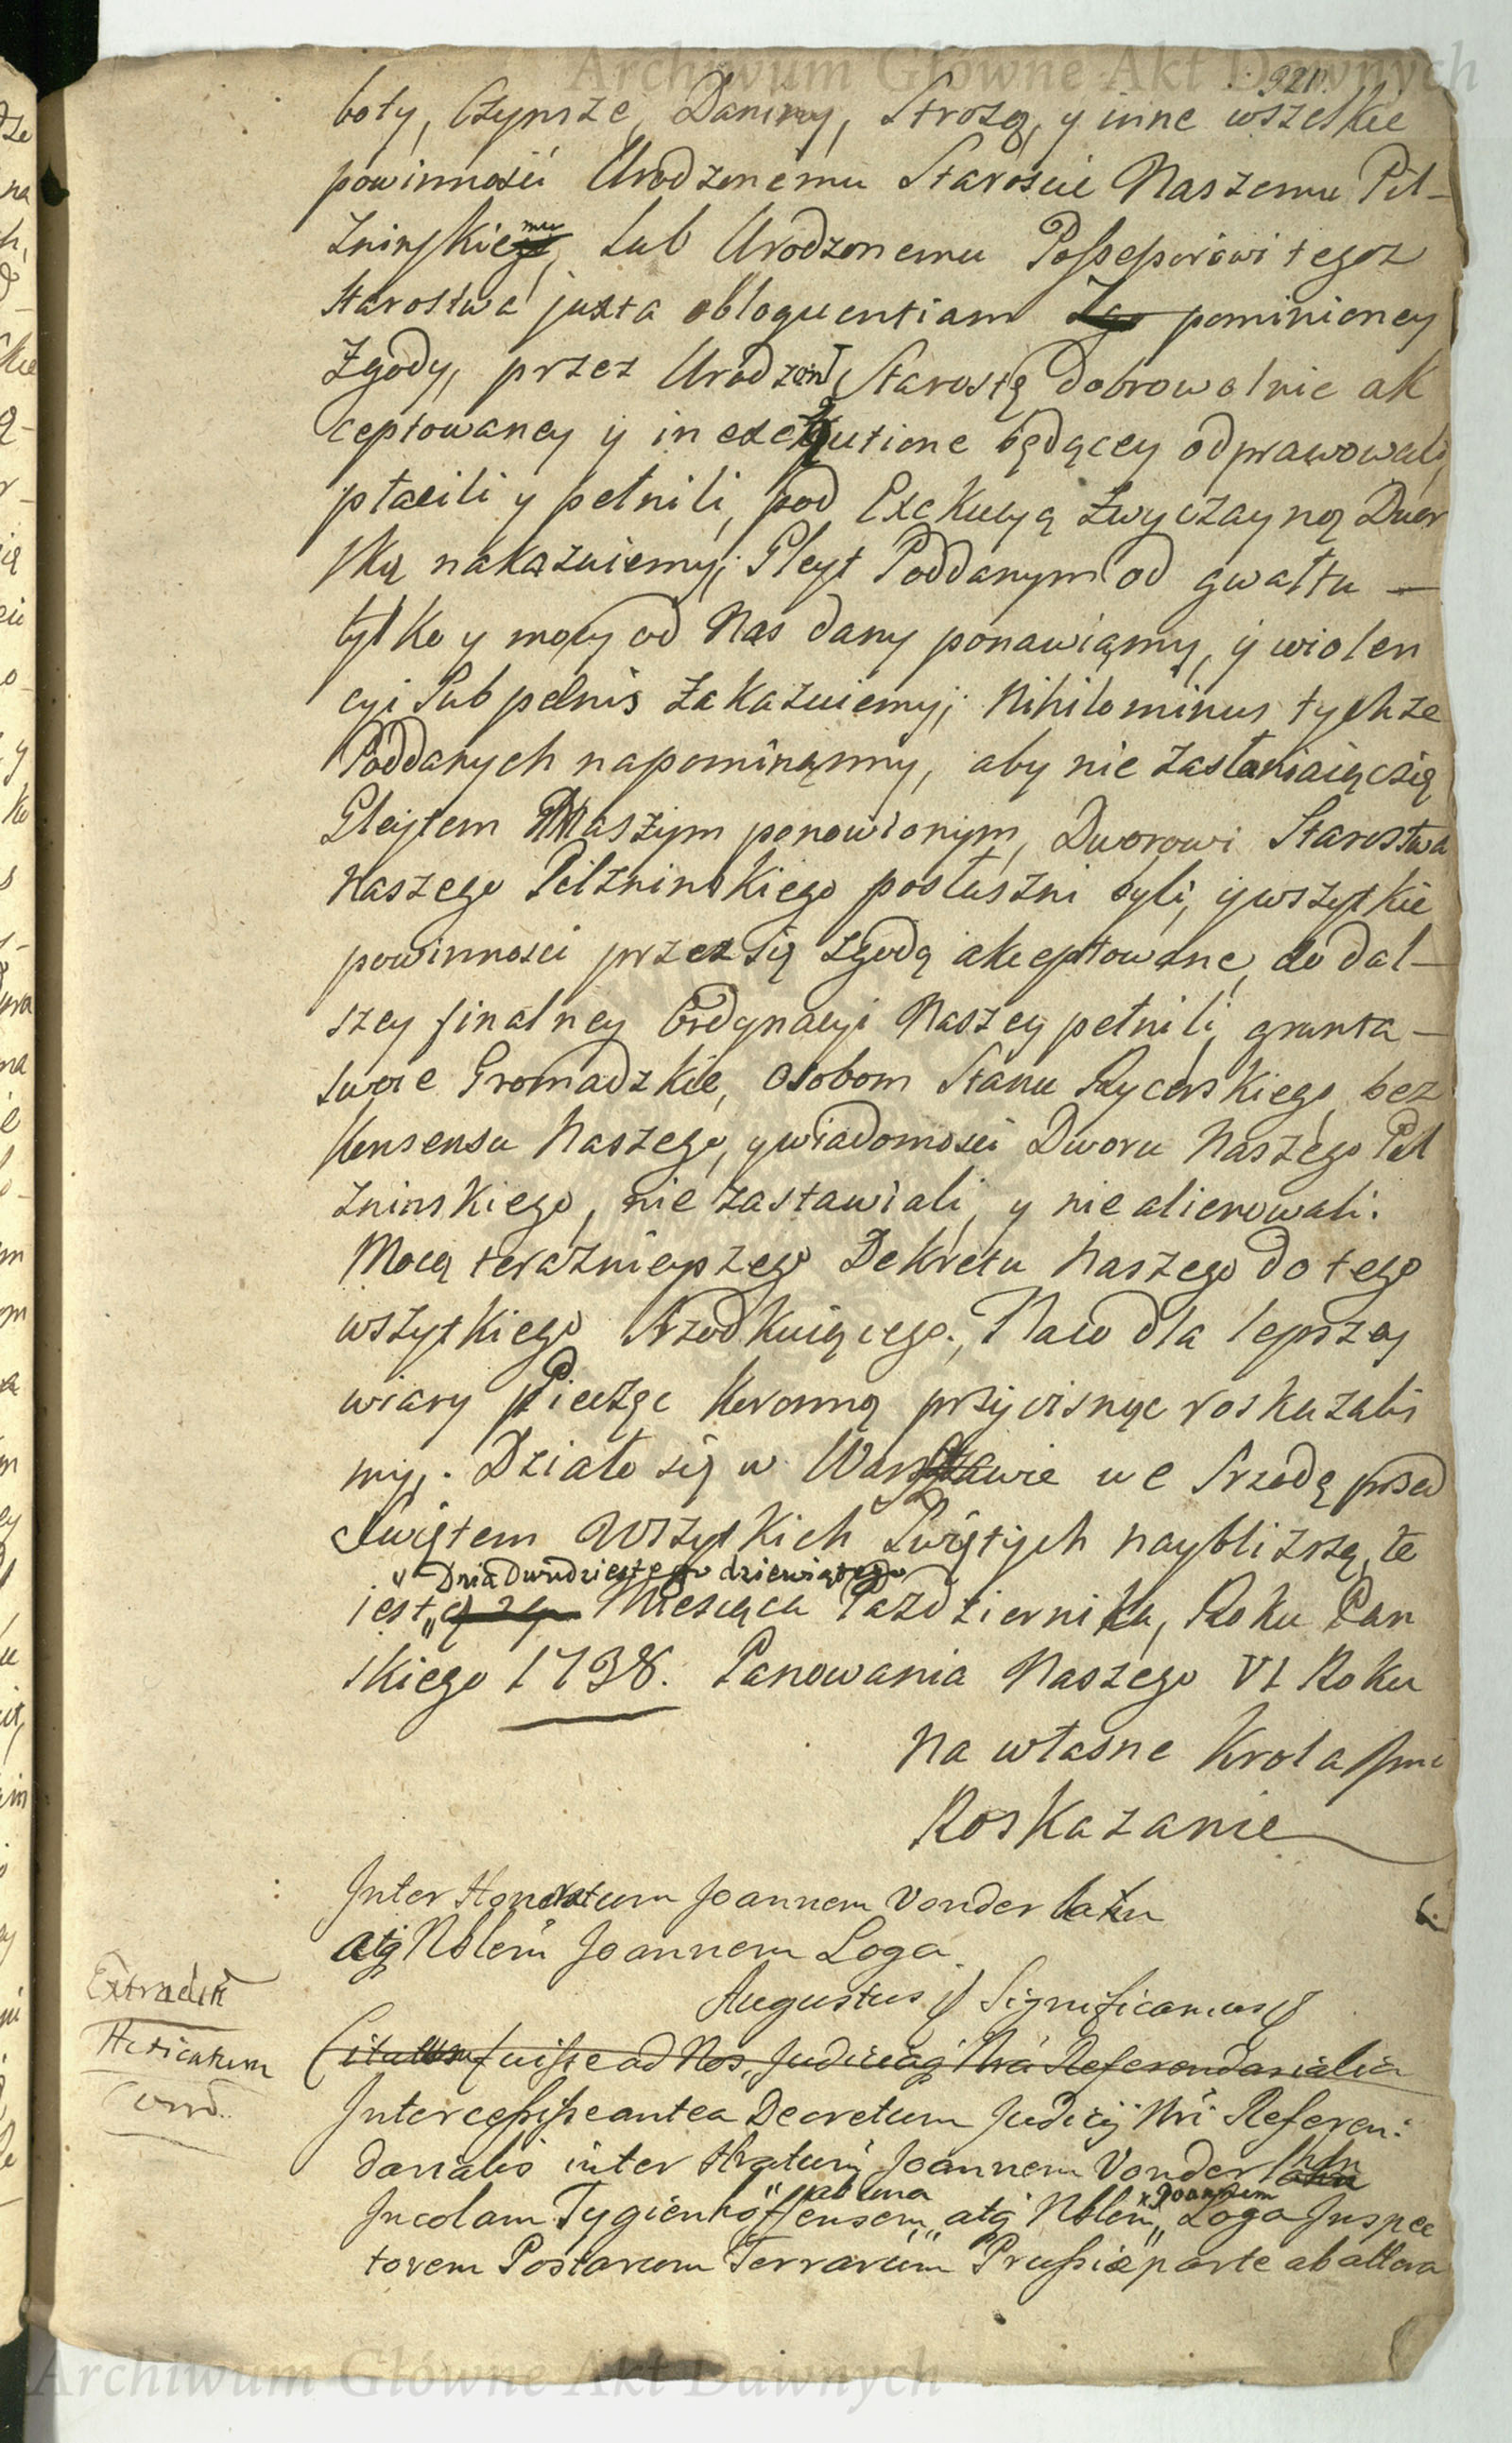 Archiwum Główne Akt Dawnych
921.
boty, Czynsze, Daniny, Strożą, y inne wszelkie
powinności Urodzonemu Staroście Naszemu Pil-
znińskiemu, lub Urodzonemu Possessorowi tegoz
Starostwa juxta obloquentiam pominioney
Zgody, przez Urodzon Starostę dobrowolnie ak
ceptowaney y in executione będącey odprawowali,
płacili y pełnili, pod Exekucyą zwyczayną Dwor
ską nakazuiemy; Gleyt Poddanym od gwałtu –
tylko y mocy od Nas dany ponawiamy, y wiolen
cyi sub pœnis zakazuiemy; Nihilominus tychze
Poddanych napominamy, aby nie zasłaniaiąc się
Gleytem Naszym ponowionym, Dworowi Starostwa
Naszego Pilzninskiego posłuszni byli, y wszytkie
powinności przez tą zgodą akceptowane, do dal-
szey finalney Ordynacyi Naszey pełnili, grunta –
swoie Gromadzkie, osobom Stanu Rycerskiego, bez
Konsensu Naszego, y wiadomości Dworu Naszego Pil
zninskiego, nie zastawiali, y nie alienowali.
Mocą teraznieyszego Dekretu Naszego do tego
wszytkiego srzodkuiącego. Na co dla lepszey
wiary Pieczęc Koronną przycisnąc roskazalis
my. Działo się w Warszawie we Srzodę przed
Swiętem Wszytkich Swiętych naybliższą, to
Dnia Dwudziestego dziewiątego
iest Miesiąca Pazdziernika, Roku Pan
skiego 1738. Panowania Naszego VI Roku
Na własne Krola Jmc
Roskazanie
Inter Honoratum Joannem Vonder
atq Nblem Joannem Loga.
Augustus Significamus
Extradit
Citatum fuisse ad Nos, Judiciaq Nra Referendarialia
Intercessisse antea Decretum Judicij Nri Referen:
darialis inter Hratum Joannem Vonder
ab una
Joannem
Incolam Tygienhöffensem atq Nblem Loga Inspec
torem Postarum Terrarum Prussiæ parte ab altera
Archiwum Główne Akt Dawnych